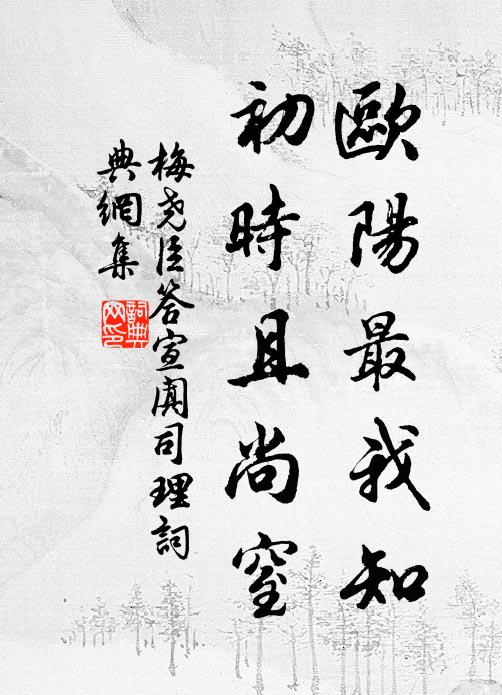 歐陽最我知
初時且尚窒
梅堯臣答宣闐司理詞
典網集
詞典
网印